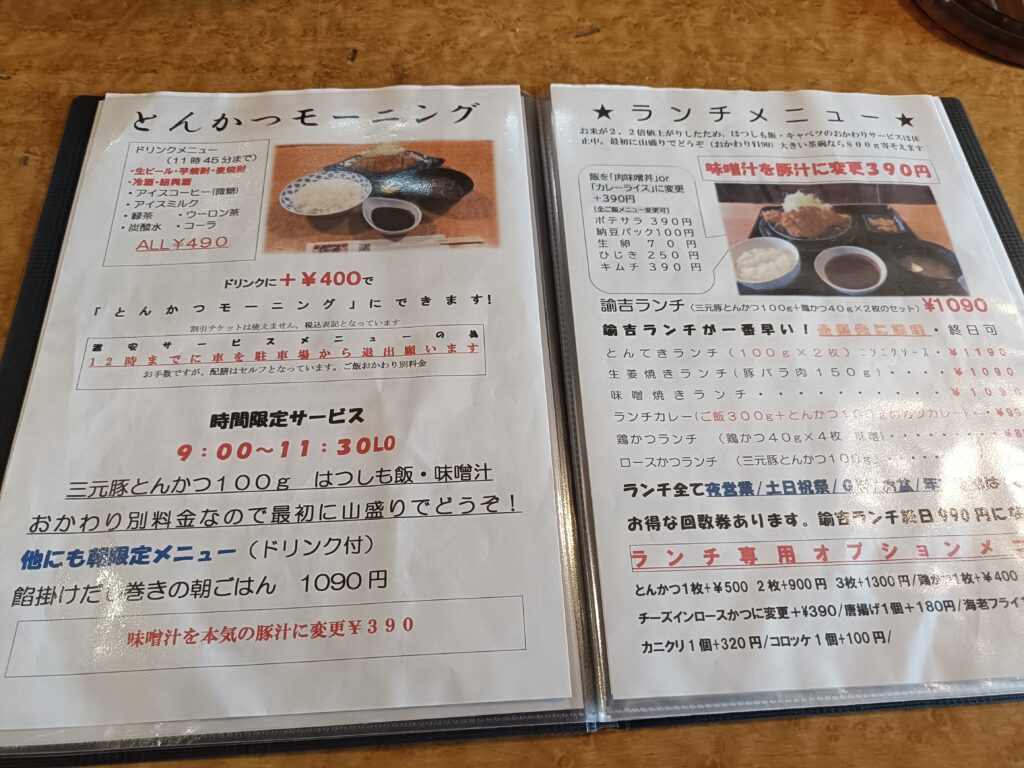 とんかつモーニング
ドリンクメニュー
(11時45分まで)
・生ビール・芋焼酎・麦焼酎
・冷酒・紹興酒
・アイスコーヒー(微糖)
・アイスミルク
・緑茶 ・ウーロン茶
・炭酸水 ・コーラ
ALL¥490
ドリンクに+¥400で
「とんかつモーニング」にできます!
割引チケットは使えません。税込表記となっています
激安サービスメニューの為
12時までに車を駐車場から退出願います
お手数ですが、配膳はセルフとなっています。ご飯おかわり別料金
時間限定サービス
9:00~11:30LO
三元豚とんかつ100g はつしも飯・味噌汁
おかわり別料金なので最初に山盛りでどうぞ!
他にも朝限定メニュー(ドリンク付)
餡掛けだし巻きの朝ごはん 1090円
味噌汁を本気の豚汁に変更¥390
★ランチメニュー★
お米が2.2倍値上がりしたため、はつしも飯・キャベツのおかわりサービスは休
止中。最初に山盛りでどうぞ(おかわり¥190)大きい茶碗なら800g寄そえます
味噌汁を豚汁に変更390円
飯を「肉味噌丼」or
「カレーライス」に変更
+390円
(全ご飯メニュー変更可)
ポテサラ 390円
納豆パック100円
生卵 70円
ひじき 250円
キムチ 390円
諭吉ランチ(三元豚とんかつ100g+鶏かつ40g×2枚のセット)¥1090
諭吉ランチが一番早い! ・終日可
とんてきランチ(100g×2枚)ニンニクソース・¥1190
生姜焼きランチ(豚バラ肉150g)・・・・¥1090
味噌焼きランチ・・・・・・・・・・・¥1090
ランチカレー(ご飯300g+とんかつ100
鶏かつランチ (鶏かつ40g×4枚 味噌)・・・・・・
ロースかつランチ (三元豚とんかつ100g)
ランチ全て夜営業/土日祝祭/
お得な回数券あります。諭吉ランチ終日990円にな
ランチ専用オプションメ
とんかつ1枚+¥500 2枚+900円 3枚+1300円/鶏かつ1枚+¥400
チーズインロースかつに変更+¥390/唐揚げ1個+180円/海老フライ
カニクリ1個+320円/コロッケ1個+100円/